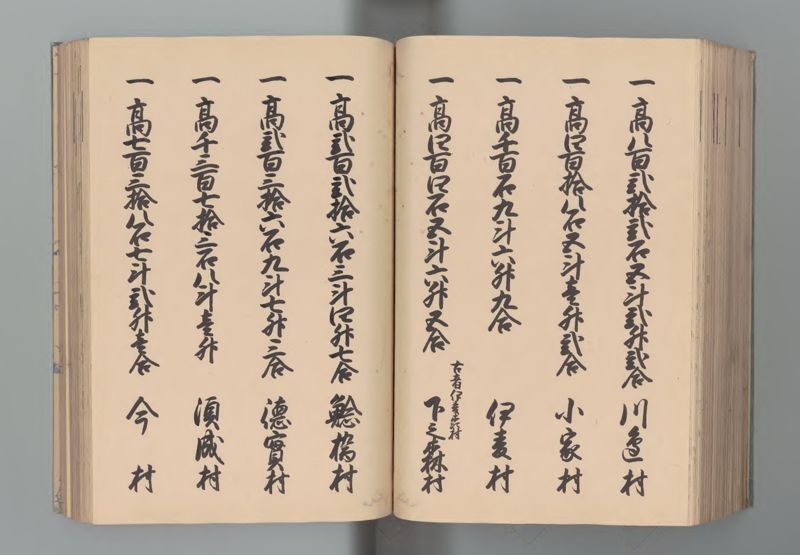 一 高八百弐拾弐石五斗弐升弐合 川邉村
一 高四百拾八石五斗壱升弐合 小家村
一 高千百石九斗六升九合 伊麦村
一 高四百四石五斗六升五合 下之森村
一 高弐百弐拾六石三斗四升七合 鯰橋村
一 高弐百三拾六石九斗七升三合 徳實村
一 高千三百七拾三石八斗壱升 須成村
一 高七百三拾八石七斗弐升壱合 今村